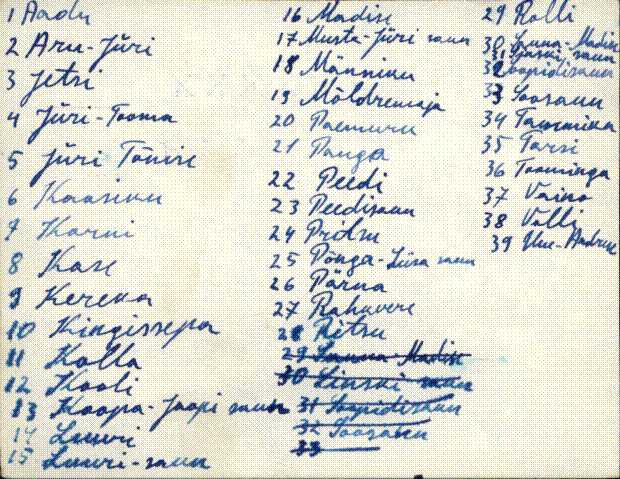 1 Aadu
2 Aru-Jüri
3 Jetsi
4 Jüri-Tooma
5 Jüri Tõnise
6 Kaasiku
7 Karni
8 Kase
9 Kereka
10 Kingissepa
11 Kolla
12 Kooli
13 Koopa-Jaapi saun
14 Luuri
15 Luuri-saun
16 Madise
17 Musta-Jüri saun
18 Männiku
19 Möldremaja
20 Paemuru
21 Panga
22 Peedi
23 Peedisaun
24 Pridsu
25 Põnga-Liisa saun
26 Pärna
27 Rahuvere
28 Ritsu
29 Sauna-Madise
30 saun
31 Soopidisaun
32 Soosaun
33
29 Rolli
30 Sauna-Madise
31 saun
32 Soopidisaun
33 Soosaun
34 Tammika
35 Tarsi
36 Toominga
37 Vaino
38 Valli
39 Uue-Andruse